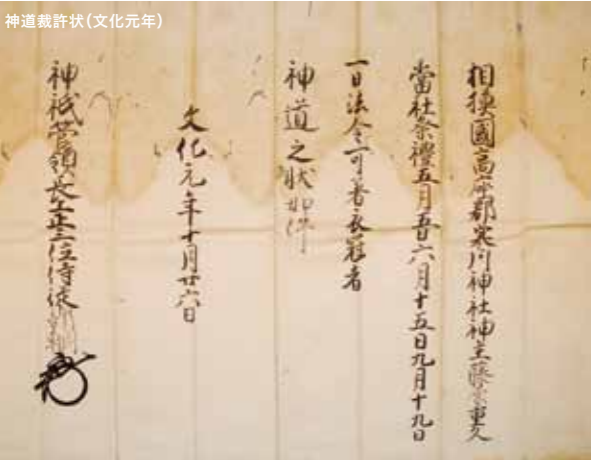 神道裁許状(文化元年)
相摸國高座郡寒川神社神主藤原重久
當社祭禮五月五日六月十五日九月十九日
一日法令可着衣冠者
神道之状如件
文化元年十月廿六日
神祇管領長上正三位侍従